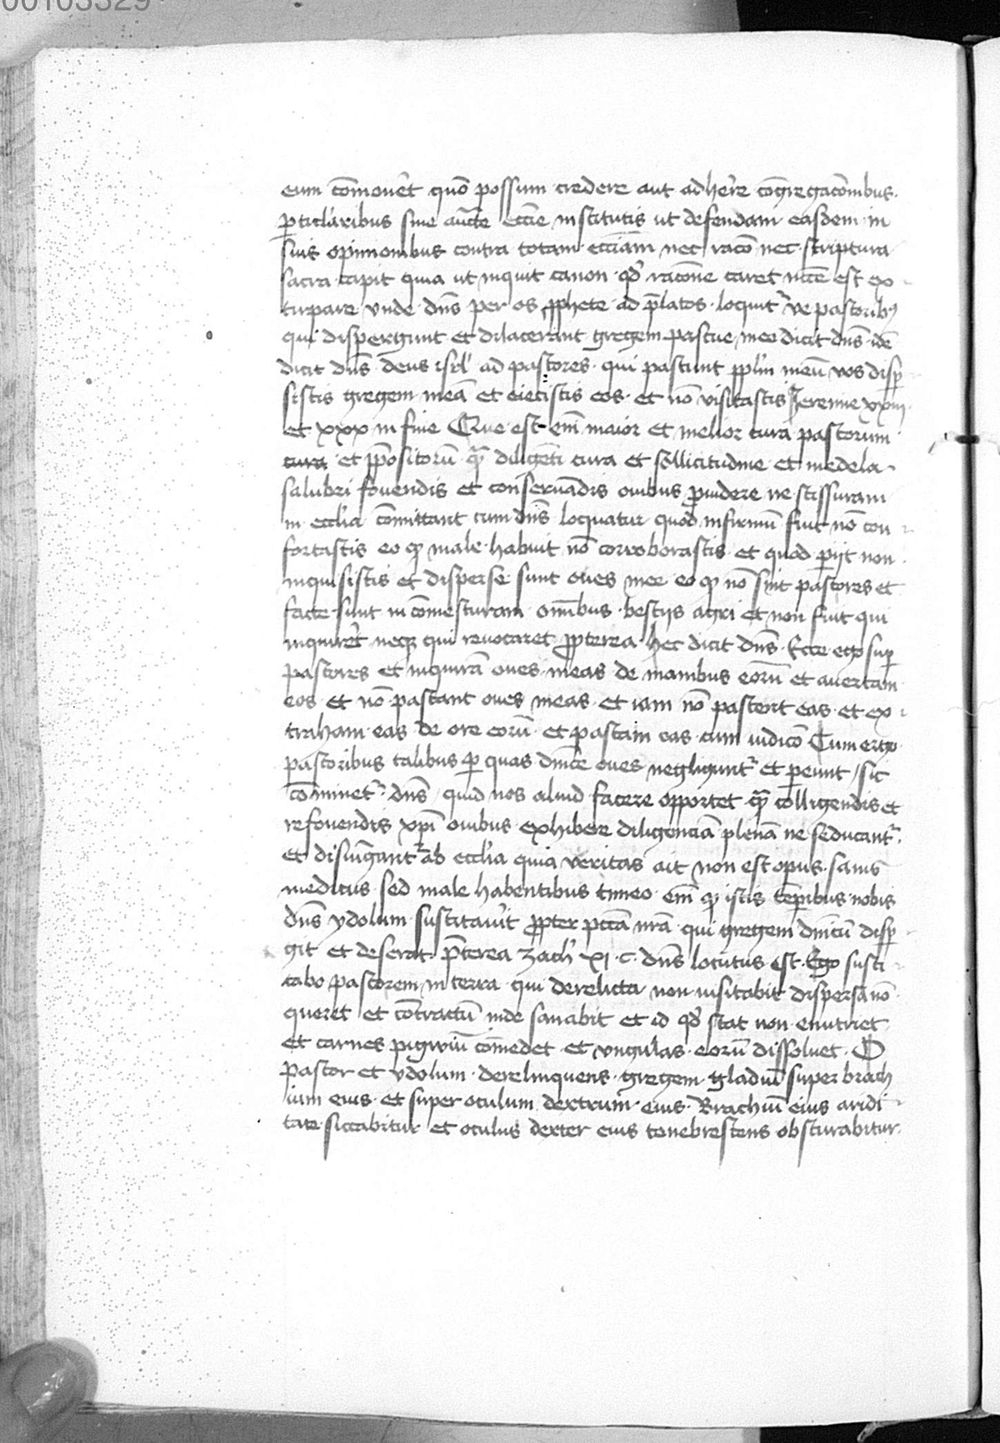 00103329
eum co̅moue̅t quo̅ possum credere aut adhe̅re co̅gregaco̅ibus.
p̲ticl̅aribus sine auc̅te ecc̅ie institutis ut defendam easdem in
suis opinionibus contra totam eccl̅iam nec raco̅ nec scriptura
sacra capit quia ut inquit canon qd̅ raco̅ne caret nc̅ce est ex
tirpare vnde dn̅s per os p̲phete ad p̅latos loquit̅ ve pastorib9
qui disperg̅unt et dilacerant gregem pascue mee dicit dn̅s ide̅
dicit dn̅s deus isrl̅ ad pastores qui pascunt ppl̅m meu̅ vos disp̲
sistis gregem mea̅ et eiecistis eos et no̅ visitastis Jeremie xxiii
et xxx in fine Que est em̅ maior et melior cura pastorum
cura et p̅positoru̅ qua̅ dilige̅ti cura et sollicitudine et medela
salubri fouendis et conserua̅dis ouibus p̲uidere ne scissuram
in eccl̅ia co̅mittant cum dn̅s loquatur quod infirmu̅ fuit no̅ con
fortastis eo q̲ male habuit no̅ corroborastis et quod p̲ijt non
inquisistis et disperse sunt oues mee eo q̲ no̅ sint pastores et
facte sunt in co̅mesturam om̅ibus bestijs agri et non fuit qui
inquire̅t neq3 qui reuocaret p̲pterea hec dicit dn̅s Ecce ego sup̲
pastores et inquira̅ oues meas de manibus eoru̅ et auertam
eos et no̅ pascant oues meas et iam no̅ pascent eas et ex
traham eas de ore eoru̅ et pascam eas cum iudico̅ Cum ergo
pastoribus talibus p̲ quas dm̅ce oues neg̅ligunt̅ et pereunt sic
co̅minet̅ dn̅s quid nos aliud facere opportet qua̅ colligendis et
refouendis xp̅i ouibus exhibere diligencia̅ plena̅ ne seducant̅
et disiu̅gant̅ ab eccl̅ia quia veritas ait non est opus sanis
medicus sed male habentibus timeo em̅ q̲ istis te̅p̲ibus nobis
dn̅s ydolum suscitaui̅t p̲pter pc̅ca nr̅a qui gregem dm̅cu̅ disp̲
git et deserat p̅terea zach̅ xi c dn̅s locutus est Ego susci
tabo pastorem in terra qui derelicta non visitabit dispersa no̅
queret et co̅tractu̅ inde sanabit et id qd̅ stat non enutriet
et carnes pigwiu̅ co̅medet et vngulas eoru̅ dissoluet O
pastor et ydolum derelinquens gregem gladiu̅ super brach
ium eius et super oculum dextrum eius Brachiu̅ eius aridi
tate siccabitur et oculus dexter eius tenebrescens obscurabitur